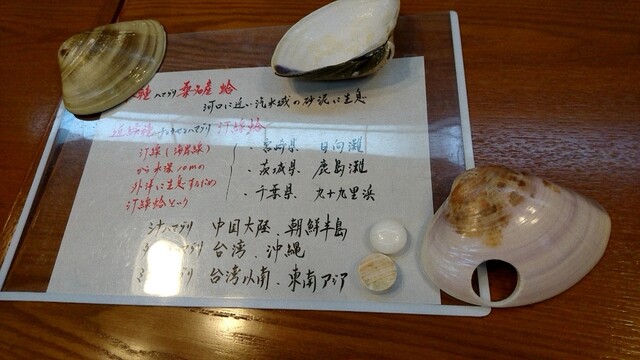 種 ハマグリ 桑名産 蛤
河口に近い汽水域の砂泥に生息
近縁種 チョウセンハマグリ 汀線蛤
汀線(海岸線) ・宮崎県 日向灘
から水深10mの ・茨城県 鹿島灘
外洋に生息するため ・千葉県 九十九里浜
汀線蛤という
シナハマグリ 中国大陸、朝鮮半島
台湾、沖縄
台湾以南、東南アジア